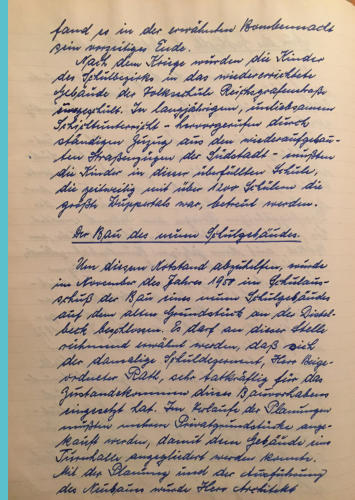 fand es in der erwähnten Bombennacht
sein vorzeitiges Ende.
Nach dem Kriege wurden die Kinder
des Schulbezirks in das wiedererrichtete
Gebäude der Volksschule Reichsgrafenstraße
eingeschult. In langjährigem, unliebsamem
Schichtunterricht - hervorgerufen durch
ständigen Zuzug aus den wiederaufgebau-
ten Straßenzügen der Südstadt - mußten
die Kinder in dieser überfüllten Schule,
die zeitweilig mit über 1200 Schülern die
größte Wuppertals war, betreut werden.
Der Bau des neuen Schulgebäudes.
Um diesem Notstand abzuhelfen, wurde
im November des Jahres 1950 im Schulaus-
schuß der Bau eines neuen Schulgebäudes
auf dem alten Grundstück an der Distel-
beck beschlossen. Es darf an dieser Stelle
rühmend erwähnt werden, daß sich
der damalige Schuldezernent, Herr Beige-
ordneter Rath, sehr tatkräftig für das
Zustandekommen dieses Bauvorhabens
eingesetzt hat. Im Verlaufe der Planungen
mußten mehrere Privatgrundstücke ange-
kauft werden, damit dem Gebäude eine
Turnhalle angegliedert werden konnte.
Mit der Planung und der Ausführung
des Neubaus wurde Herr Architekt